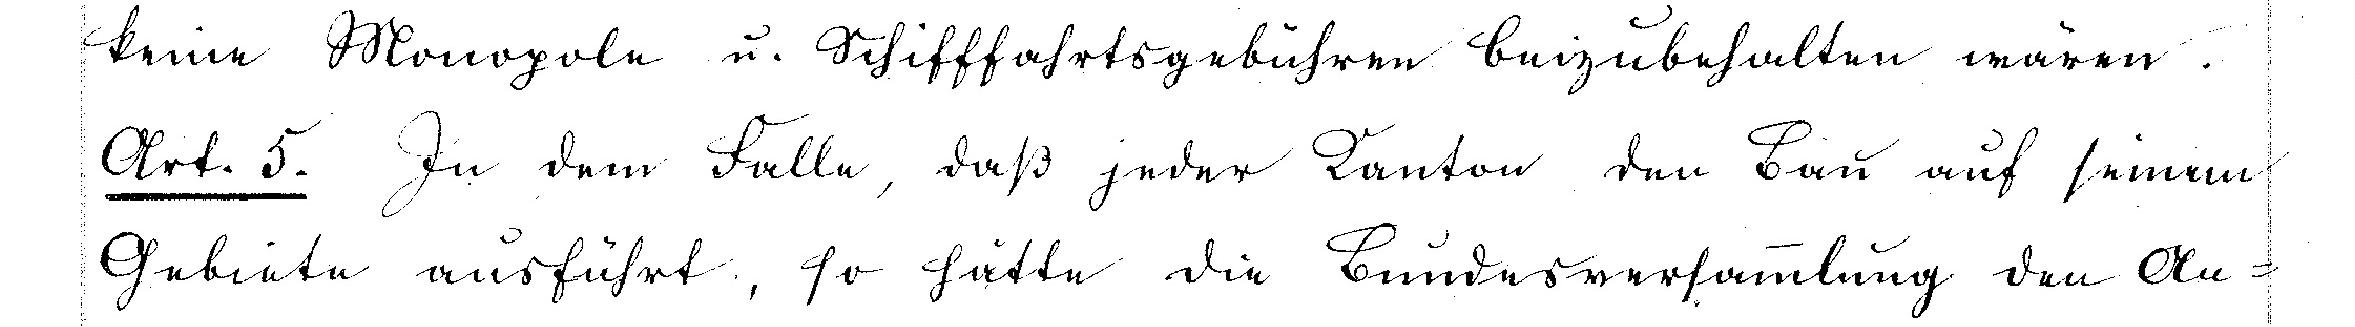 keine Monopole u. Schifffahrtsgebühren beizubehalten wären.
Art. 5. In dem Falle, daß jeder Kanton den Bau auf seinem
Gebiete ausführt, so hätte die Bundesversam̅lung den An=